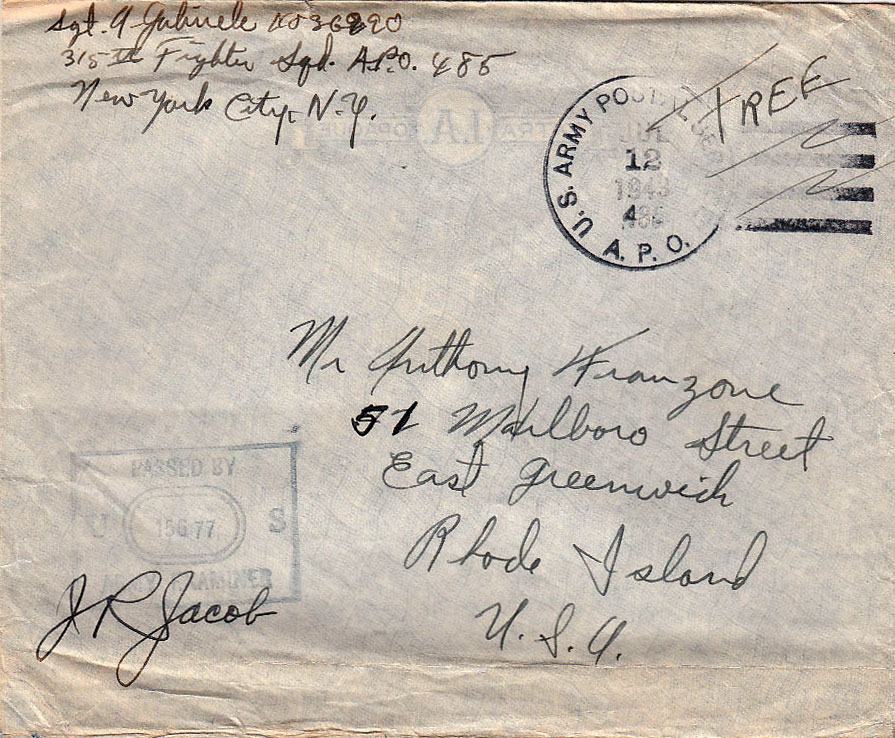 Sgt. A Gabriele
315th Fighter Sqd. A.P.O. 485
New York City, N.Y.
FREE
U.S. ARMY POSTAL
12
1943
A.P.O.
Mr Anthony Franzone
51 Marlboro Street
East Greenwich
Rhode Island
U.S.A.
PASSED BY
U S
ARMY EXAMINER
J R Jacob